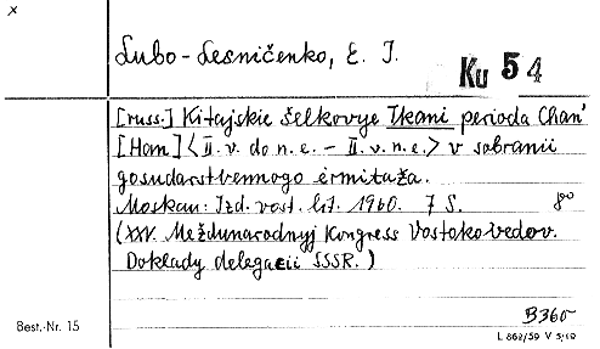 x
Lubo-Lesničenko, E. I.
Ku 54
[russ.] Kitajskie šelkovye Tkani perioda Chan'
[Ham] <II. v. do n. e. - II. v. n. e.> v sobranii
gosudarstvennogo ėrmitaža.
Moskau: Izd. vost. lit. 1960. 7 S. 8°
(XXV. Meždunarodnyj Kongress Vostokovedov.
Doklady delegacii SSSR.)
B360
Best.-Nr. 15
L 862/59 V 5/10